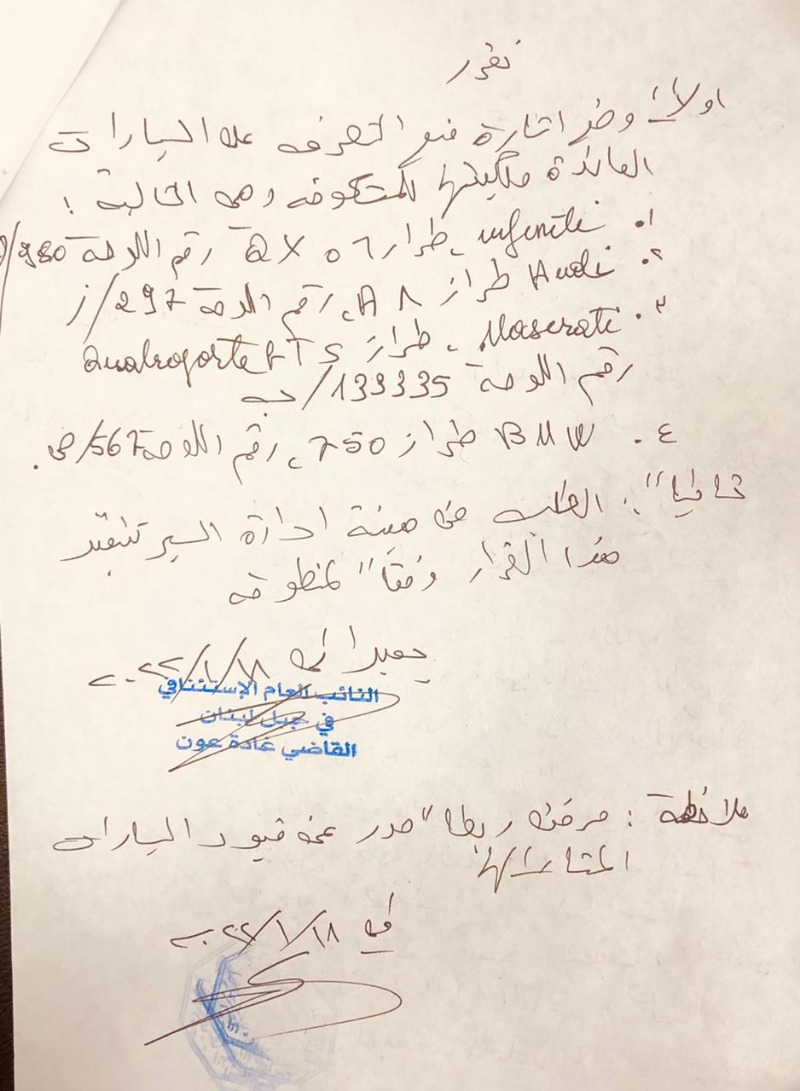 نقرر
اولاً: وضع اشارة منع التصرف على السيارات
العائدة ملكيتها للمتكوفه وهي التالية:
١. infiniti، طراز QX ٥٦ رقم اللوحة
٢. Audi طراز A ٨، رقم اللوحة 297/ز
٣. Maserati، طراز Quatroporte GTS
رقم اللوحة 139335/ج
٤. BMW طراز 750، رقم اللوحة 567/
ثانياً": الطلب من هيئة ادارة السير تنفيذ
هذا القرار وفقاً" لمنطوقه
بعبدا في ٢٠٢٢/١/١٨
النائب العام الإستئنافي
في جبل لبنان
القاضي غادة عون
ملاحظة: مرفق ربطا" صور عن قيود السيارات
المشار اليها
في ٢٠٢٢/١/١٨